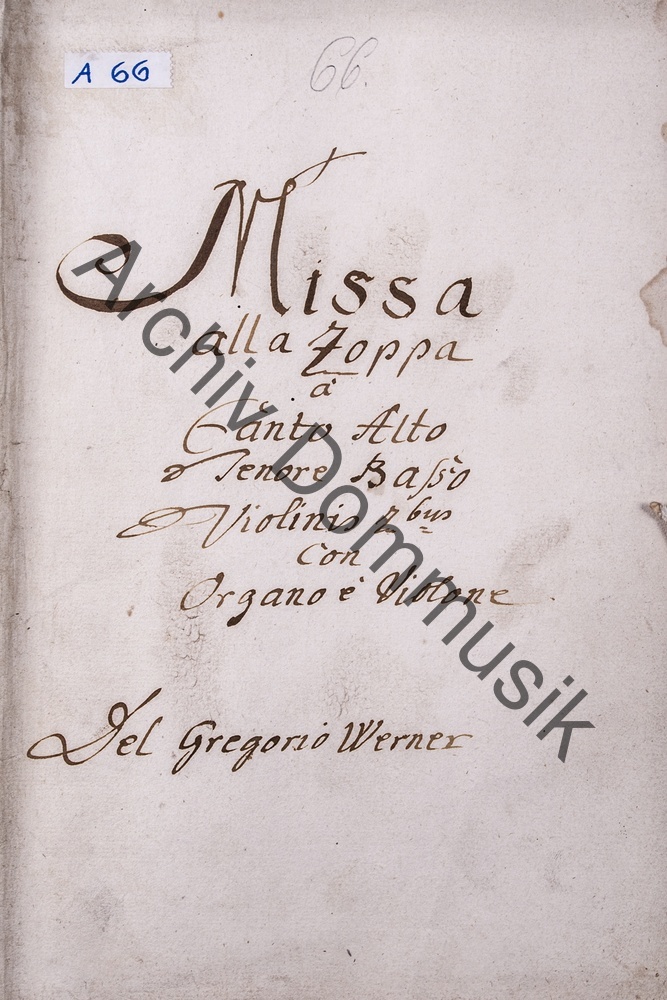 A 66
66.
Missa
alla Zoppa
à
Canto Alto
Tenore Basso
Violinis 2bus
con
Organo è Violone
Del Gregorio Werner
Archiv Dommusik